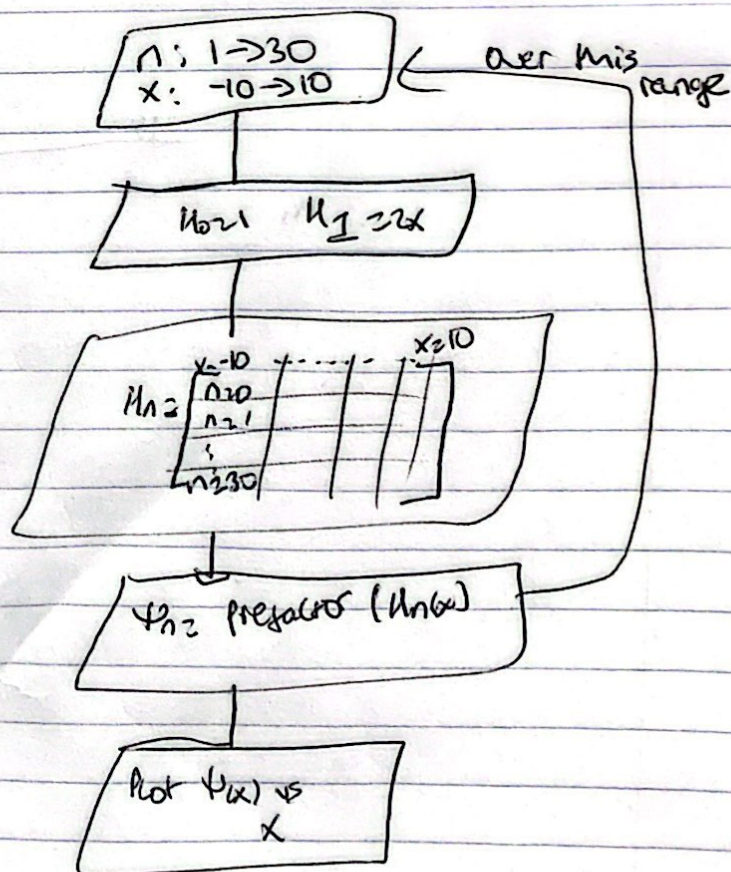 n: 1→30
x: -10→10
over this
range
H₀=1 H₁=2x
x=-10 ------- x=10
Hn=
n=0
n=1
⋮
n=30
Ψn= prefactor (Hn(x))
Plot Ψ(x) vs
x